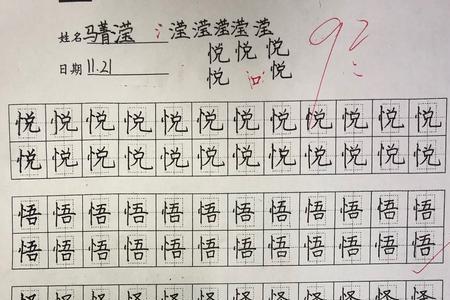 姓名 马菁滢 氵滢滢滢滢滢 92
悦悦悦
日期 11.21 悦 口 悦
悦悦悦悦悦悦悦悦悦悦悦悦
悦悦悦悦悦悦悦悦悦悦悦悦
悟悟悟悟悟悟悟悟悟悟悟悟
悟悟悟悟悟悟悟悟悟悟悟悟